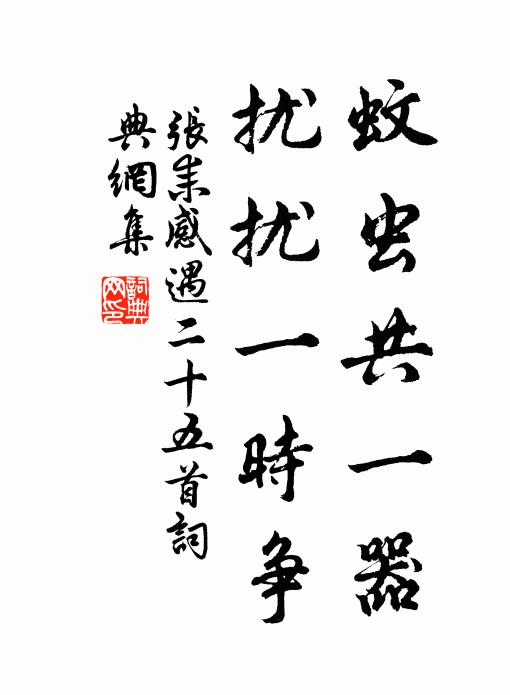 蚊虫共一器
扰扰一時争
張耒感遇二十五首詞
典網集
詞典网印